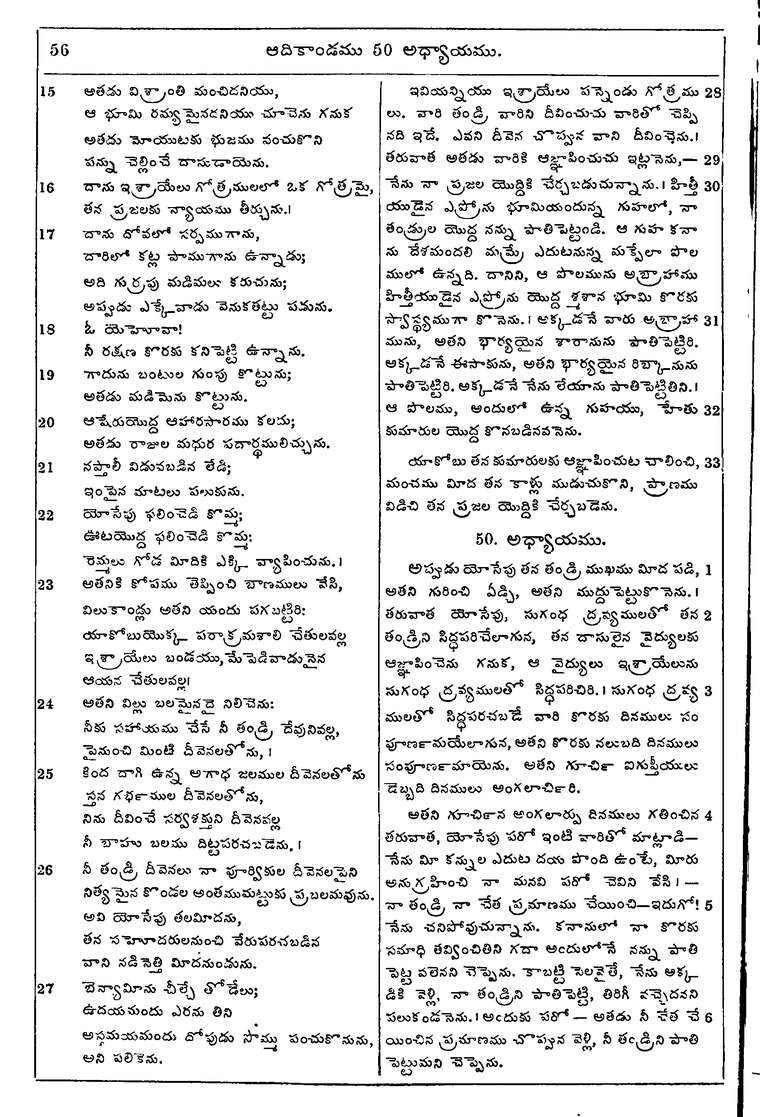 56 ఆదికాండము 50 అధ్యాయము.
15 అతడు విశ్రాంతి మంచిదనియు,
ఆ భూమి రమ్యమైనదనియు చూచెను గనుక
అతడు మోయుటకు భుజము నంచుకొని
పన్ను చెల్లించే దాసుడాయెను.
16 దాను ఇశ్రాయేలు గోత్రములలో ఒక గోత్రమై,
తన ప్రజలకు న్యాయము తీర్చును.।
17 దాను దోవలో సర్పముగాను,
దారిలో కట్ల పాముగాను ఉన్నాడు;
అది గుర్రపు మడిమలు కరుచును;
అప్పుడు ఎక్కేవాడు వెనుకతట్టు పడును.
18 ఓ యెహోవా!
నీ రక్షణ కొరకు కనిపెట్టి ఉన్నాను.
19 గాదును బంటుల గుంపు కొట్టును;
అతడు మడిమెను కొట్టును.
20 ఆషేరుయొద్ద ఆహారసారము కలదు;
అతడు రాజుల మధుర పదార్థములిచ్చును.
21 నప్తాలీ విడువబడిన లేడి;
ఇంపైన మాటలు పలుకును.
22 యోసేపు ఫలించెడి కొమ్మ;
ఊటయొద్ద ఫలించెడి కొమ్మ:
రెమ్మలు గోడ మీదికి ఎక్కి వ్యాపించును.।
23 అతనికి కోపము తెప్పించి బాణములు వేసి,
విలుకాండ్లు అతని యందు పగబట్టిరి:
యాకోబుయొక్క పరాక్రమశాలి చేతులవల్ల
ఇశ్రాయేలు బండయు, మేపెడివాడునైన
ఆయన చేతులవల్ల।
24 అతని విల్లు బలమైనదై నిలిచెను:
నీకు సహాయము చేసే నీ తండ్రి దేవునివల్ల,
పైనుంచి మింటి దీవెనలతోను,।
25 కింద దాగి ఉన్న అగాధ జలముల దీవెనలతోను
స్తన గర్భముల దీవెనలతోను,
నిను దీవించే సర్వశక్తుని దీవెనవల్ల
నీ బాహు బలము దిట్టపరచబడెను.।
26 నీ తండ్రి దీవెనలు నా పూర్వికుల దీవెనలపైని
నిత్యమైన కొండల అంతముమట్టుకు ప్రబలమవును.
అవి యోసేపు తలమీదను,
తన సహోదరులనుంచి వేరుపరచబడిన
వాని నడినెత్తి మీదనుండును.
27 బెన్యామీను చీల్చే తోడేలు;
ఉదయమందు ఎరను తిని
అస్తమయమందు దోపుడు సొమ్ము పంచుకొనును,
అని పలికెను.
ఇవియన్నియు ఇశ్రాయేలు పన్నెండు గోత్రము 28
లు. వారి తండ్రి వారిని దీవించుచు వారితో చెప్పి
నది ఇదే. ఎవని దీవెన చొప్పున వాని దీవించెను.।
తరువాత అతడు వారికి ఆజ్ఞాపించుచు ఇట్లనెను,— 29
నేను నా ప్రజల యొద్దికి చేర్చబడుచున్నాను.। హిత్తీ 30
యుడైన ఎఫ్రోను భూమియందున్న గుహలో, నా
తండ్రుల యొద్ద నన్ను పాతిపెట్టండి. ఆ గుహ కనా
ను దేశమందలి మమ్రే ఎదుటనున్న మక్పేలా పొల
ములో ఉన్నది. దానిని, ఆ పొలమును అబ్రాహాము
హిత్తీయుడైన ఎఫ్రోను యొద్ద శ్మశాన భూమి కొరకు
స్వాస్థ్యముగా కొనెను.। అక్కడనే వారు అబ్రాహా 31
మును, అతని భార్యయైన శారానును పాతిపెట్టిరి.
అక్కడనే ఈసాకును, అతని భార్యయైన రిబ్కానును
పాతిపెట్టిరి. అక్కడనే నేను లేయాను పాతిపెట్టితిని.।
ఆ పొలము, అందులో ఉన్న గుహయు, హేతు 32
కుమారుల యొద్ద కొనబడినవనెను.
యాకోబు తన కుమారులకు ఆజ్ఞాపించుట చాలించి, 33
మంచము మీద తన కాళ్లు ముడుచుకొని, ప్రాణము
విడిచి తన ప్రజల యొద్దికి చేర్చబడెను.
50. అధ్యాయము.
అప్పుడు యోసేపు తన తండ్రి ముఖము మీద పడి, 1
అతని గురించి ఏడ్చి, అతని ముద్దుపెట్టుకొనెను.।
తరువాత యోసేపు, సుగంధ ద్రవ్యములతో తన 2
తండ్రిని సిద్ధపరిచేలాగున, తన దాసులైన వైద్యులకు
ఆజ్ఞాపించెను గనుక, ఆ వైద్యులు ఇశ్రాయేలును
సుగంధ ద్రవ్యములతో సిద్ధపరిచిరి.। సుగంధ ద్రవ్య 3
ములతో సిద్ధపరచబడే వారి కొరకు దినములు సం
పూర్ణమయేలాగున, అతని కొరకు నలుబది దినములు
సంపూర్ణమాయెను. అతని గూర్చి ఐగుప్తీయులు
డెబ్బది దినములు అంగలార్చిరి.
అతని గూర్చిన అంగలార్పు దినములు గతించిన 4
తరువాత, యోసేపు ఫరో ఇంటి వారితో మాట్లాడి—
నేను మీ కన్నుల ఎదుట దయ పొంది ఉంటే, మీరు
అనుగ్రహించి నా మనవి ఫరో చెవిని వేసి।—
నా తండ్రి నా చేత ప్రమాణము చేయించి—ఇదుగో! 5
నేను చనిపోవుచున్నాను. కనానులో నా కొరకు
సమాధి తవ్వించితిని గదా అందులోనే నన్ను పాతి
పెట్ట వలెనని చెప్పెను. కాబట్టి సెలవైతే, నేను అక్క
డికి వెళ్లి, నా తండ్రిని పాతిపెట్టి, తిరిగీ వచ్చెదనని
పలుకండనెను.। అందుకు ఫరో—అతడు నీ చేత చే 6
యించిన ప్రమాణము చొప్పున వెళ్లి, నీ తండ్రిని పాతి
పెట్టుమని చెప్పెను.